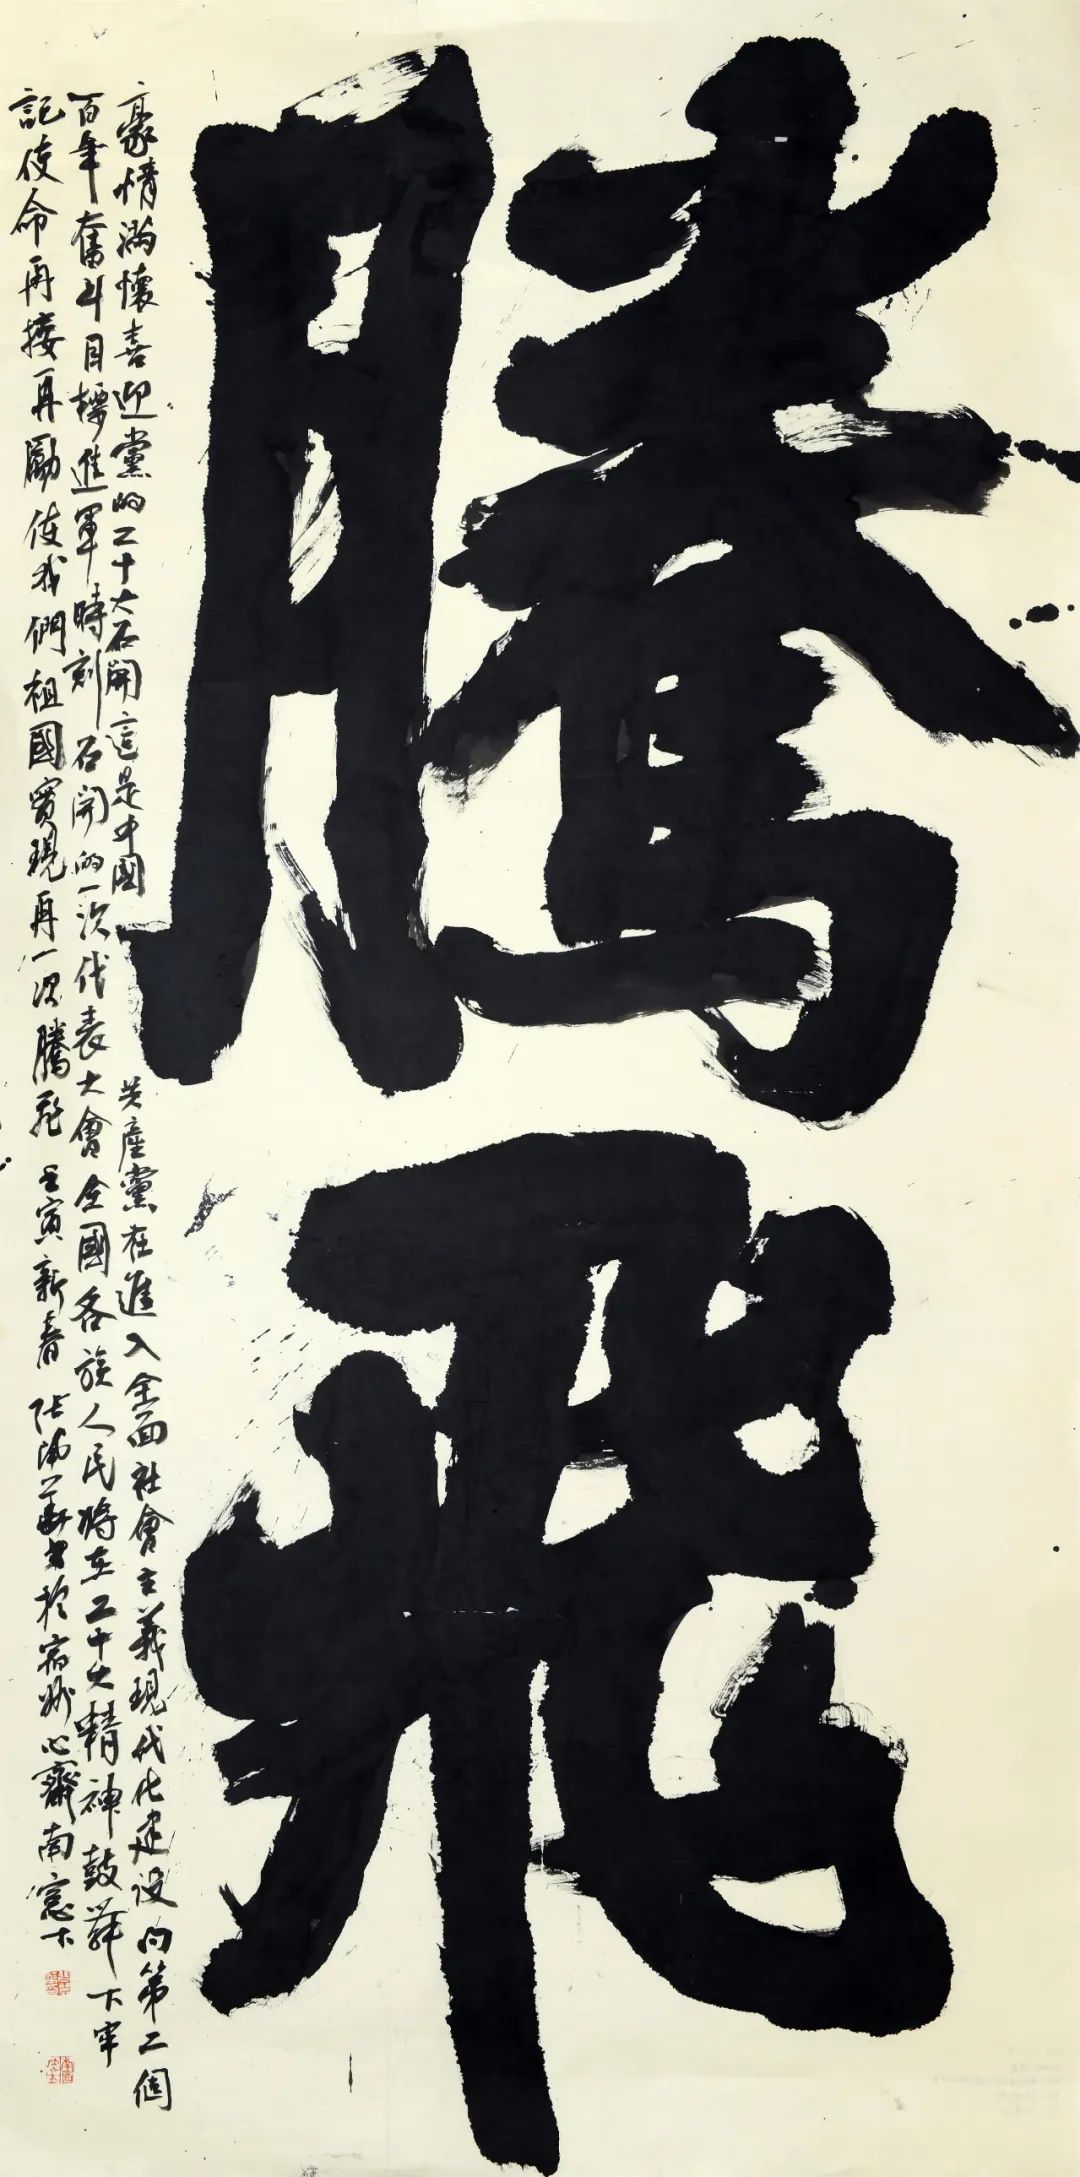 騰飛
豪情滿懷喜迎黨的二十大召開這是中國共產黨在進入全面社會主義現代化建設向第二個
百年奮斗目標進軍時刻召開的一次代表大會全國各族人民將在二十大精神鼓舞下牢
記使命再接再勵使我們祖國實現再一次騰飛 壬寅新春 張書於宿州心齋南窗下